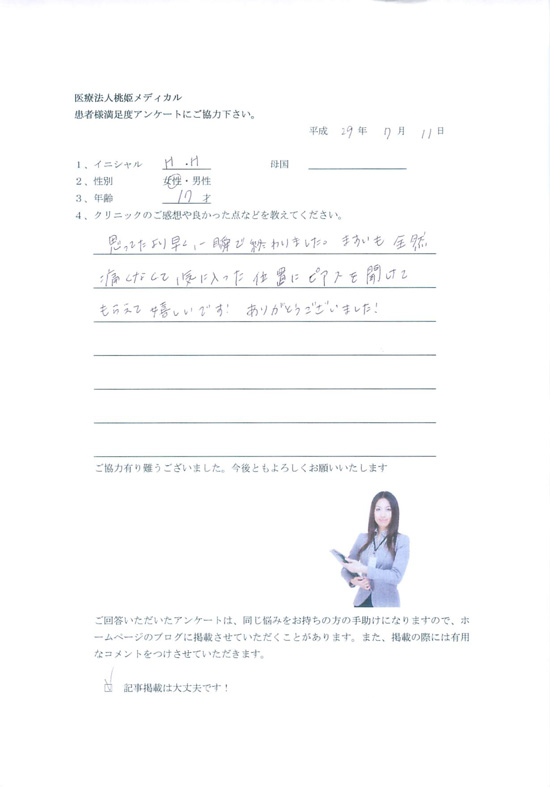 医療法人桃姫メディカル
患者様満足度アンケートにご協力下さい。
平成 29年 7月 11日
1、イニシャル H.H 母国
2、性別 女性・男性
3、年齢 17才
4、クリニックのご感想や良かった点などを教えてください。
思ってたより早く、一瞬で終わりました。ますいも全然
痛くなくて、気に入った位置にピアスを開けて
もらえて嬉しいです! ありがとうございました!
ご協力有り難うございました。今後ともよろしくお願いいたします
ご回答いただいたアンケートは、同じ悩みをお持ちの方の手助けになりますので、ホ
ームページのブログに掲載させていただくことがあります。また、掲載の際には有用
なコメントをつけさせていただきます。
☑ 記事掲載は大丈夫です！